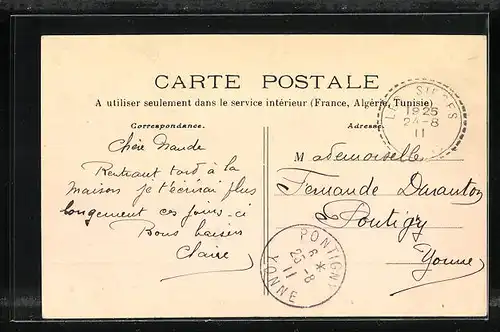 CARTE POSTALE
A utiliser seulement dans le service intérieur (France, Algérie, Tunisie)
Correspondance.
Chère Nande
Rentrant tard à la
maison je t'écrirai plus
longement ces jours-ci
Bons baisers
Claire
Adresse
Mademoiselle
Fernande Daranton
Pontigy
Yonne
LES SIEGES
1925
24-8
11
PONTIGNY
6 *
25-8
11
YONNE